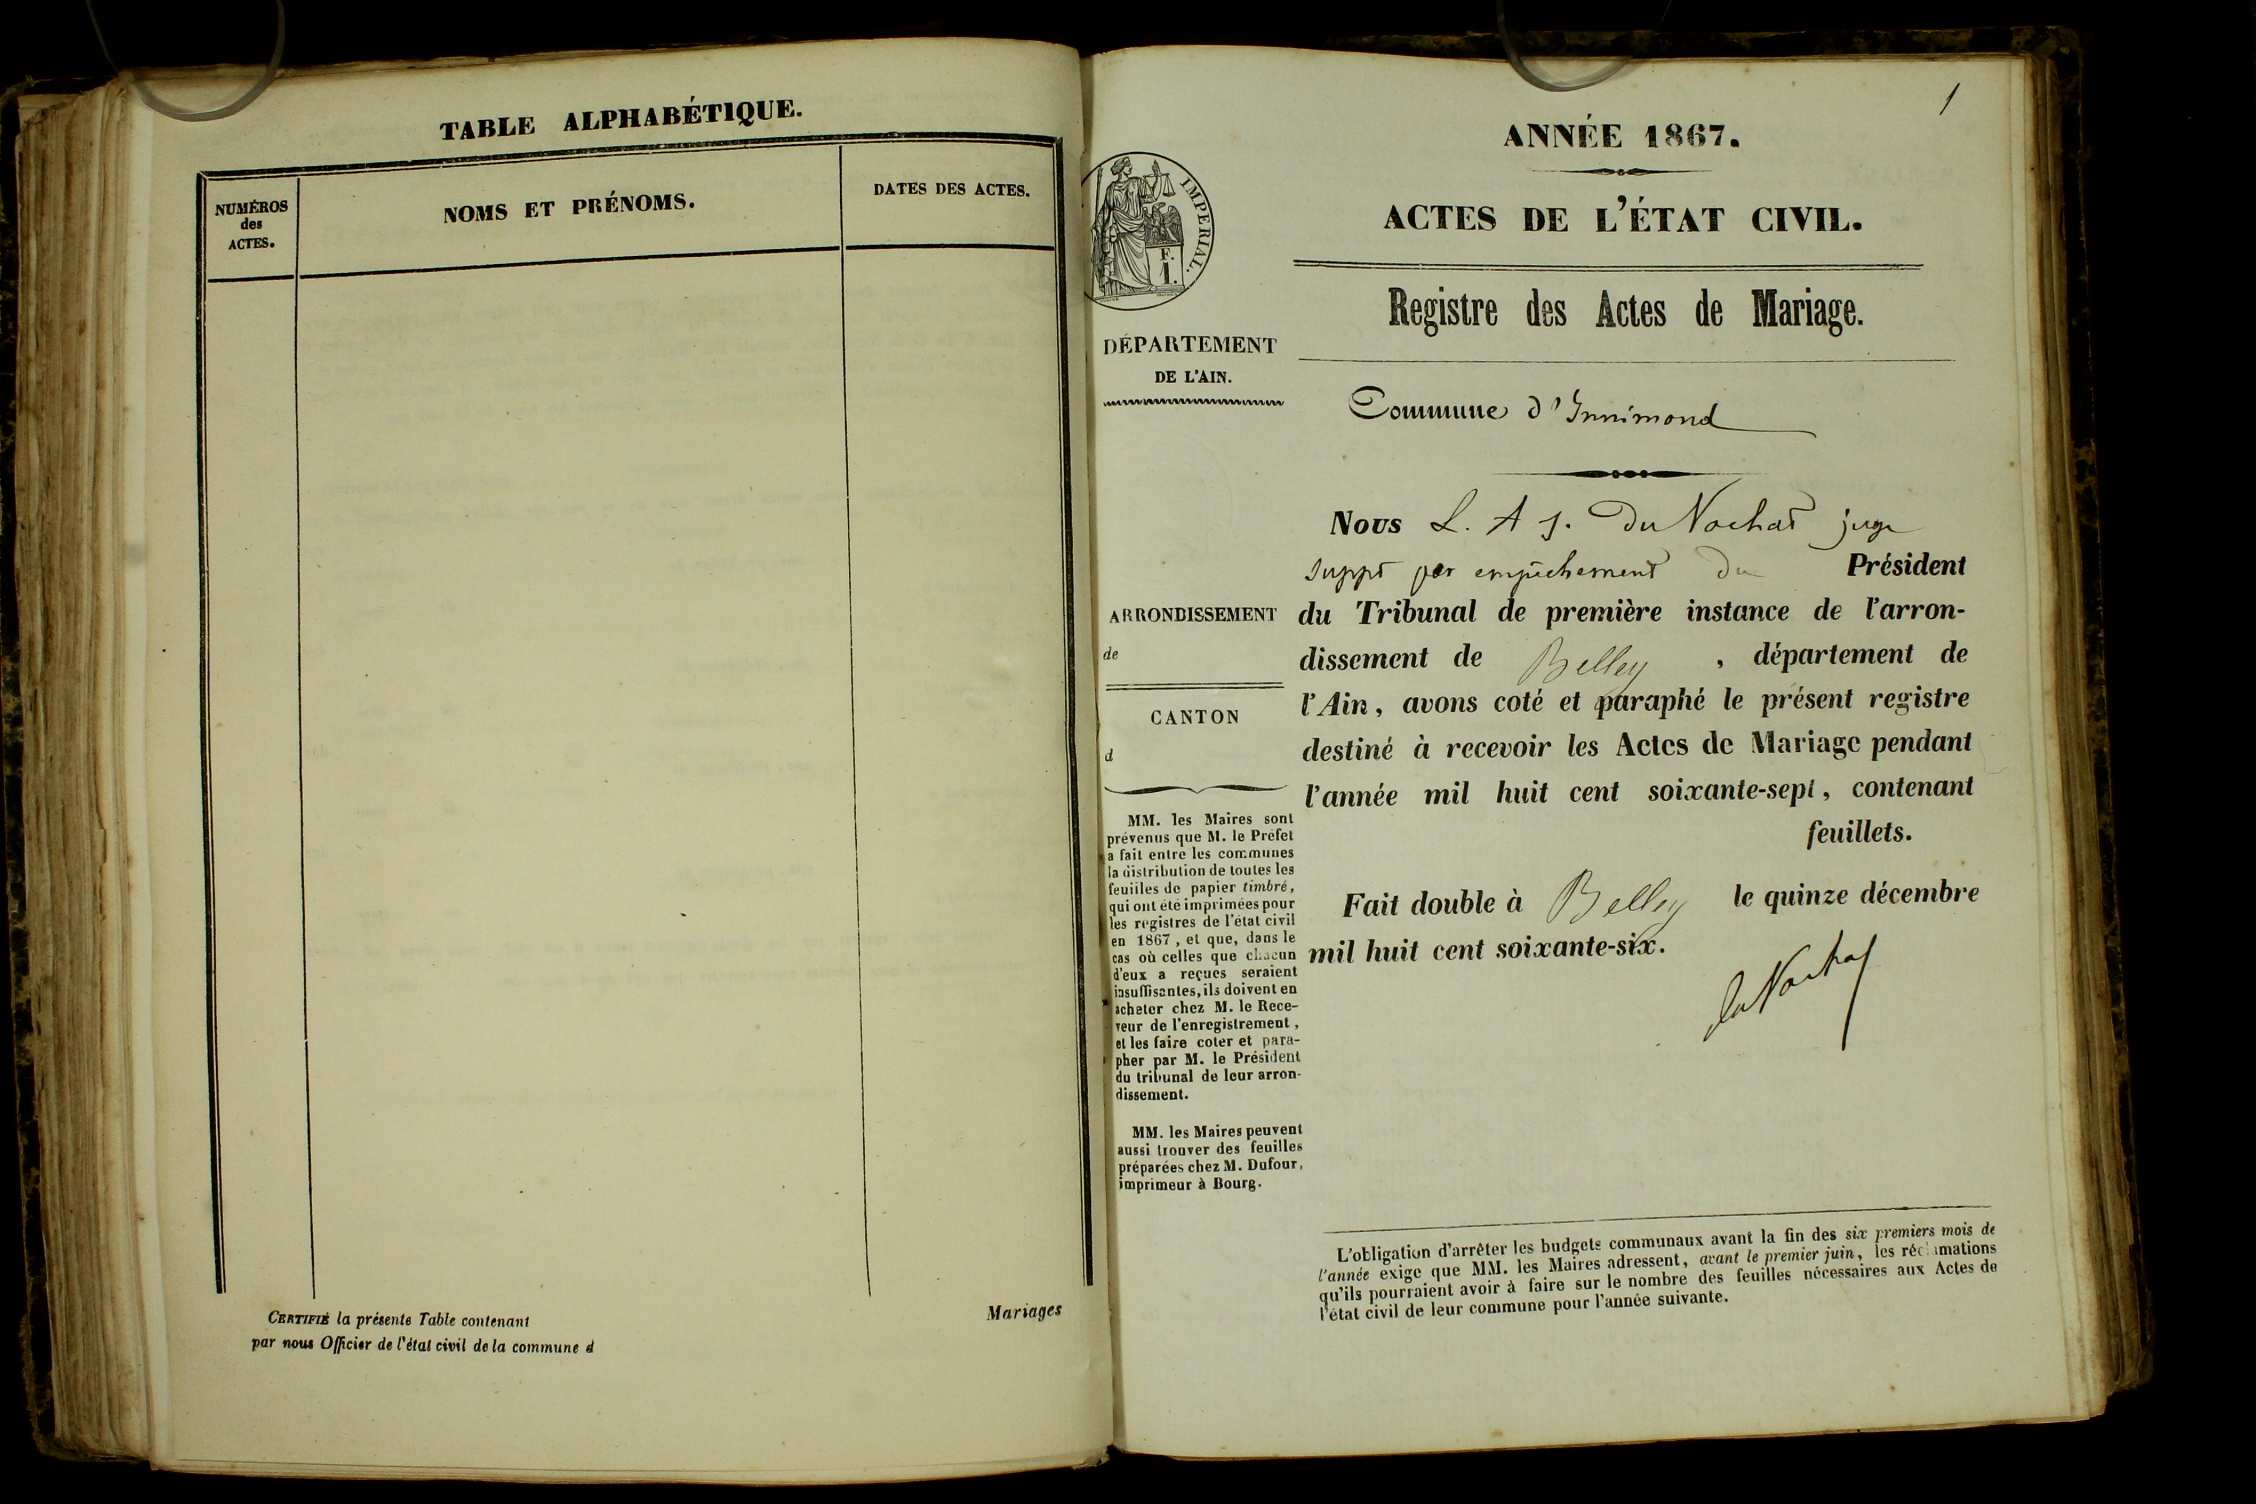 TABLE ALPHABÉTIQUE.
NUMÉROS
des
ACTES.
NOMS ET PRÉNOMS.
DATES DES ACTES.
CERTIFIÉ la présente Table contenant Mariages
par nous Officier de l'état civil de la commune d
1
ANNÉE 1867.
ACTES DE L'ÉTAT CIVIL.
Registre des Actes de Mariage.
IMPERIAL.
F.
1.
DÉPARTEMENT
DE L'AIN.
ARRONDISSEMENT
de
CANTON
d
MM. les Maires sont
prévenus que M. le Préfet
a fait entre les communes
la distribution de toutes les
feuilles de papier timbré,
qui ont été imprimées pour
les registres de l'état civil
en 1867, et que, dans le
cas où celles que chacun
d'eux a reçues seraient
insuffisantes, ils doivent en
acheter chez M. le Rece-
veur de l'enregistrement,
et les faire coter et para-
pher par M. le Président
du tribunal de leur arron-
dissement.
MM. les Maires peuvent
aussi trouver des feuilles
préparées chez M. Dufour,
imprimeur à Bourg.
Commune d'Innimond
Nous L. A J. Du Nochat juge
suppt par empêchement du Président
du Tribunal de première instance de l'arron-
dissement de Belley, département de
l'Ain, avons coté et paraphé le présent registre
destiné à recevoir les Actes de Mariage pendant
l'année mil huit cent soixante-sept, contenant
feuillets.
Fait double à Belley le quinze décembre
mil huit cent soixante-six.
L'obligation d'arrêter les budgets communaux avant la fin des six premiers mois de
l'année exige que MM. les Maires adressent, avant le premier juin, les réclamations
qu'ils pourraient avoir à faire sur le nombre des feuilles nécessaires aux Actes de
l'état civil de leur commune pour l'année suivante.